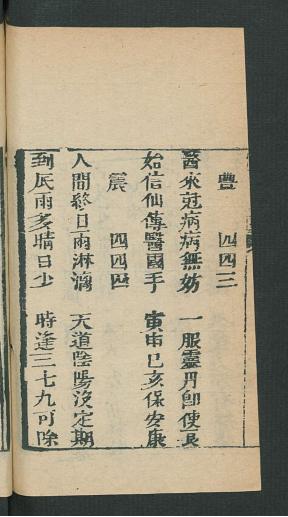 豐 四四三
醫來冠病病無妨 一服靈丹即使良
始信仙傳醫國手 寅申巳亥保安康
震 四四四
人間終日雨淋漓 天道陰陽沒定期
到底雨多晴日少 時逢三七九可除